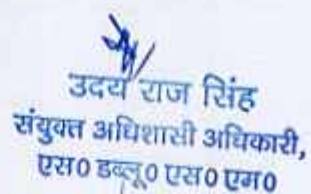 उदय राज सिंह
संयुक्त अधिशासी अधिकारी,
एस0 डब्लू0 एस0 एम0